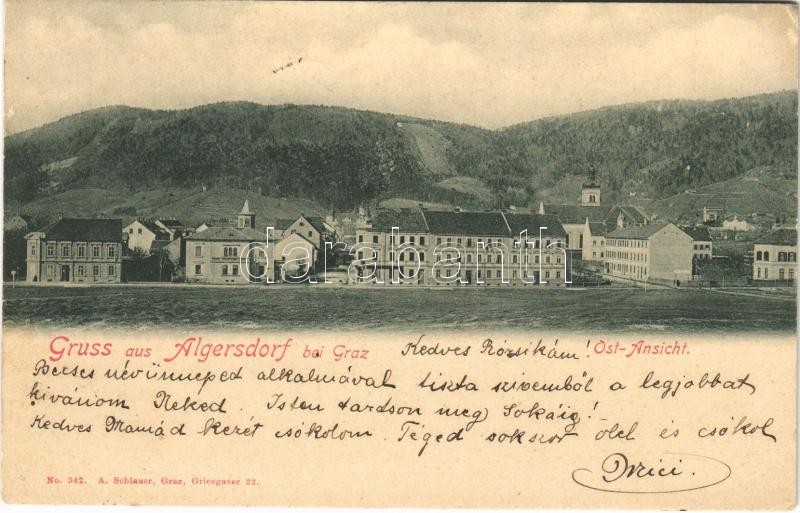 darabanth
Gruss aus Algersdorf bei Graz Kedves Rózsikám! Ost-Ansicht.
Becses névünneped alkalmával tiszta szivemből a legjobbat
kivánom Neked. Isten tartson meg Sokáig!
Kedves Mamád kezét csókolom. Téged sokszor ölel és csókol
No. 342. A. Schlauer, Graz, Griesgasse 22.